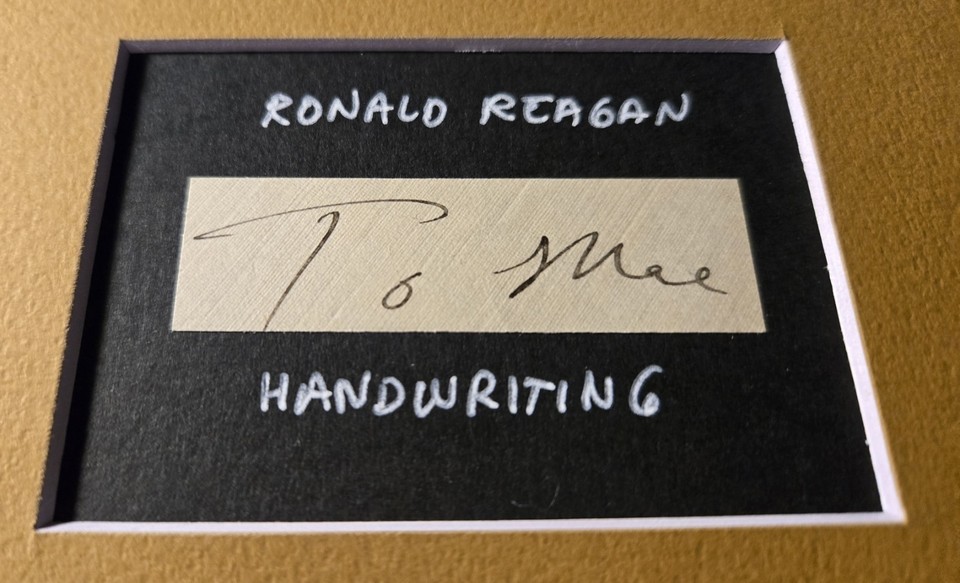 RONALD REAGAN
To Mae
HANDWRITING